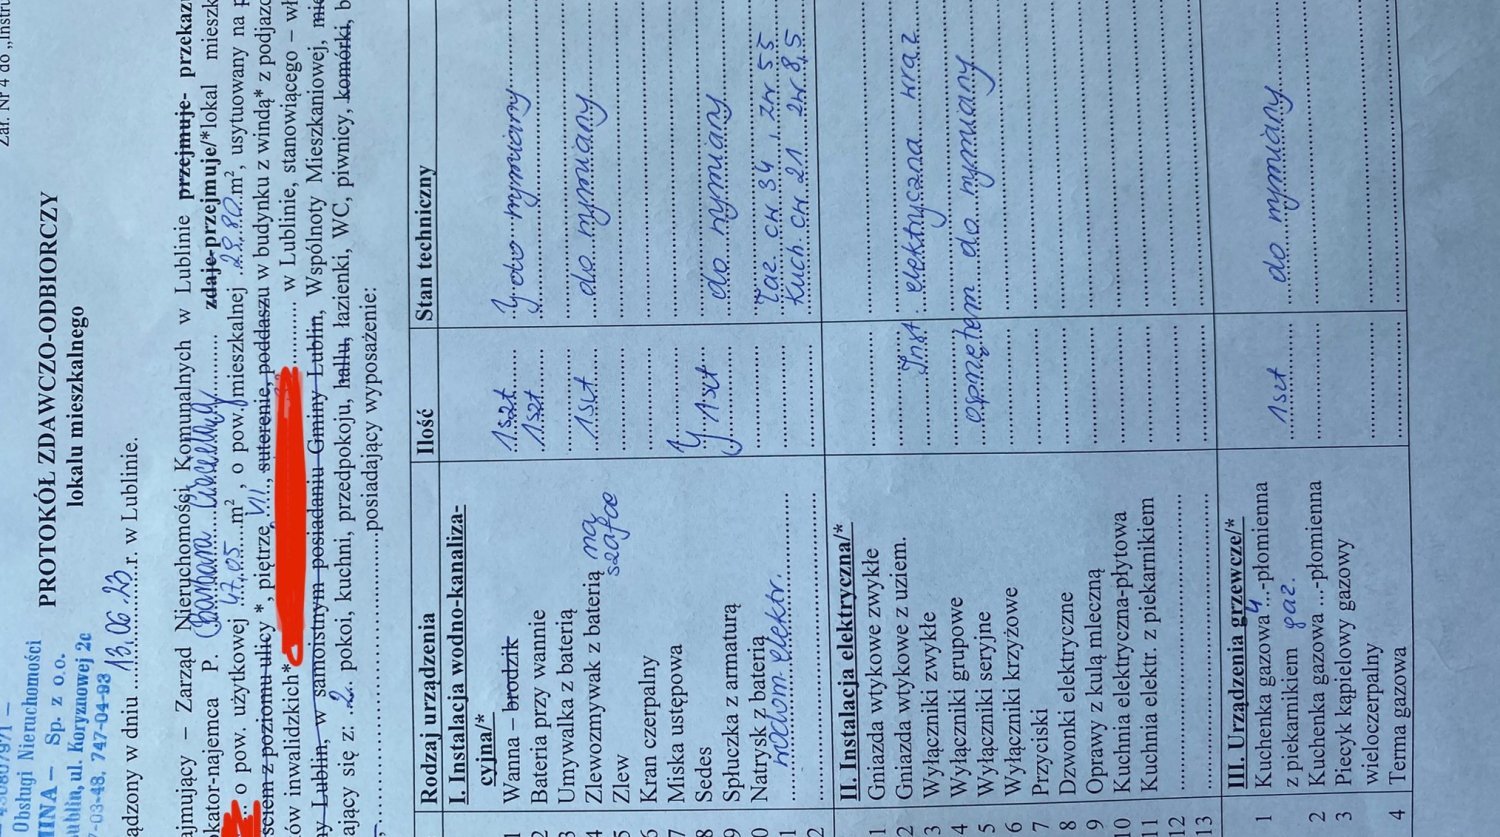 Zał. Nr 4 do „Instru
Obsługi Nieruchomości
– Sp. z o.o.
ublin, ul. Koryznowej 2c
7-03-48, 747-04-93
PROTOKÓŁ ZDAWCZO-ODBIORCZY
lokalu mieszkalnego
ądzony w dniu 13.06.23 r. w Lublinie.
ajmujący – Zarząd Nieruchomości Komunalnych w Lublinie przejmuje- przekazu
okator-najemca P. Barbara zdaje-przejmuje/*lokal mieszk
o pow. użytkowej 47,05 m², o pow. mieszkalnej 28,80 m², usytuowany na p
sienn z poziomu ulicy *, piętrze VII, suterenie, poddaszu w budynku z windą* z podjazd
ków inwalidzkich* w Lublinie, stanowiącego – wł
ny Lublin, w samoistnym posiadaniu Gminy Lublin, Wspólnoty Mieszkaniowej, mie
ający się z: 2 pokoi, kuchni, przedpokoju, hallu, łazienki, WC, piwnicy, komórki, b
posiadający wyposażenie:
Rodzaj urządzenia Ilość Stan techniczny
I. Instalacja wodno-kanaliza-
cyjna/*
1 Wanna – brodzik 1 szt
2 Bateria przy wannie 1 szt } do wymiany
3 Umywalka z baterią
4 Zlewozmywak z baterią na szafce 1 szt do wymiany
5 Zlew
6 Kran czerpalny
7 Miska ustępowa
8 Sedes } 1 szt
9 Spłuczka z armaturą do wymiany
0 Natrysk z baterią
1 wodom. elektr. Łaz. CW 34, ZW 55
2 Kuch CW 21 ZW 8,5
II. Instalacja elektryczna/*
1 Gniazda wtykowe zwykłe
2 Gniazda wtykowe z uziem.
3 Wyłączniki zwykłe Inst. elektryczna wraz
4 Wyłączniki grupowe
5 Wyłączniki seryjne osprzętem do wymiany
6 Wyłączniki krzyżowe
7 Przyciski
8 Dzwonki elektryczne
9 Oprawy z kulą mleczną
10 Kuchnia elektryczna-płytowa
11 Kuchnia elektr. z piekarnikiem
12
13
III. Urządzenia grzewcze/*
1 Kuchenka gazowa 4-płomienna
z piekarnikiem gaz. 1 szt do wymiany
2 Kuchenka gazowa ...-płomienna
3 Piecyk kąpielowy gazowy
wieloczerpalny
4 Terma gazowa